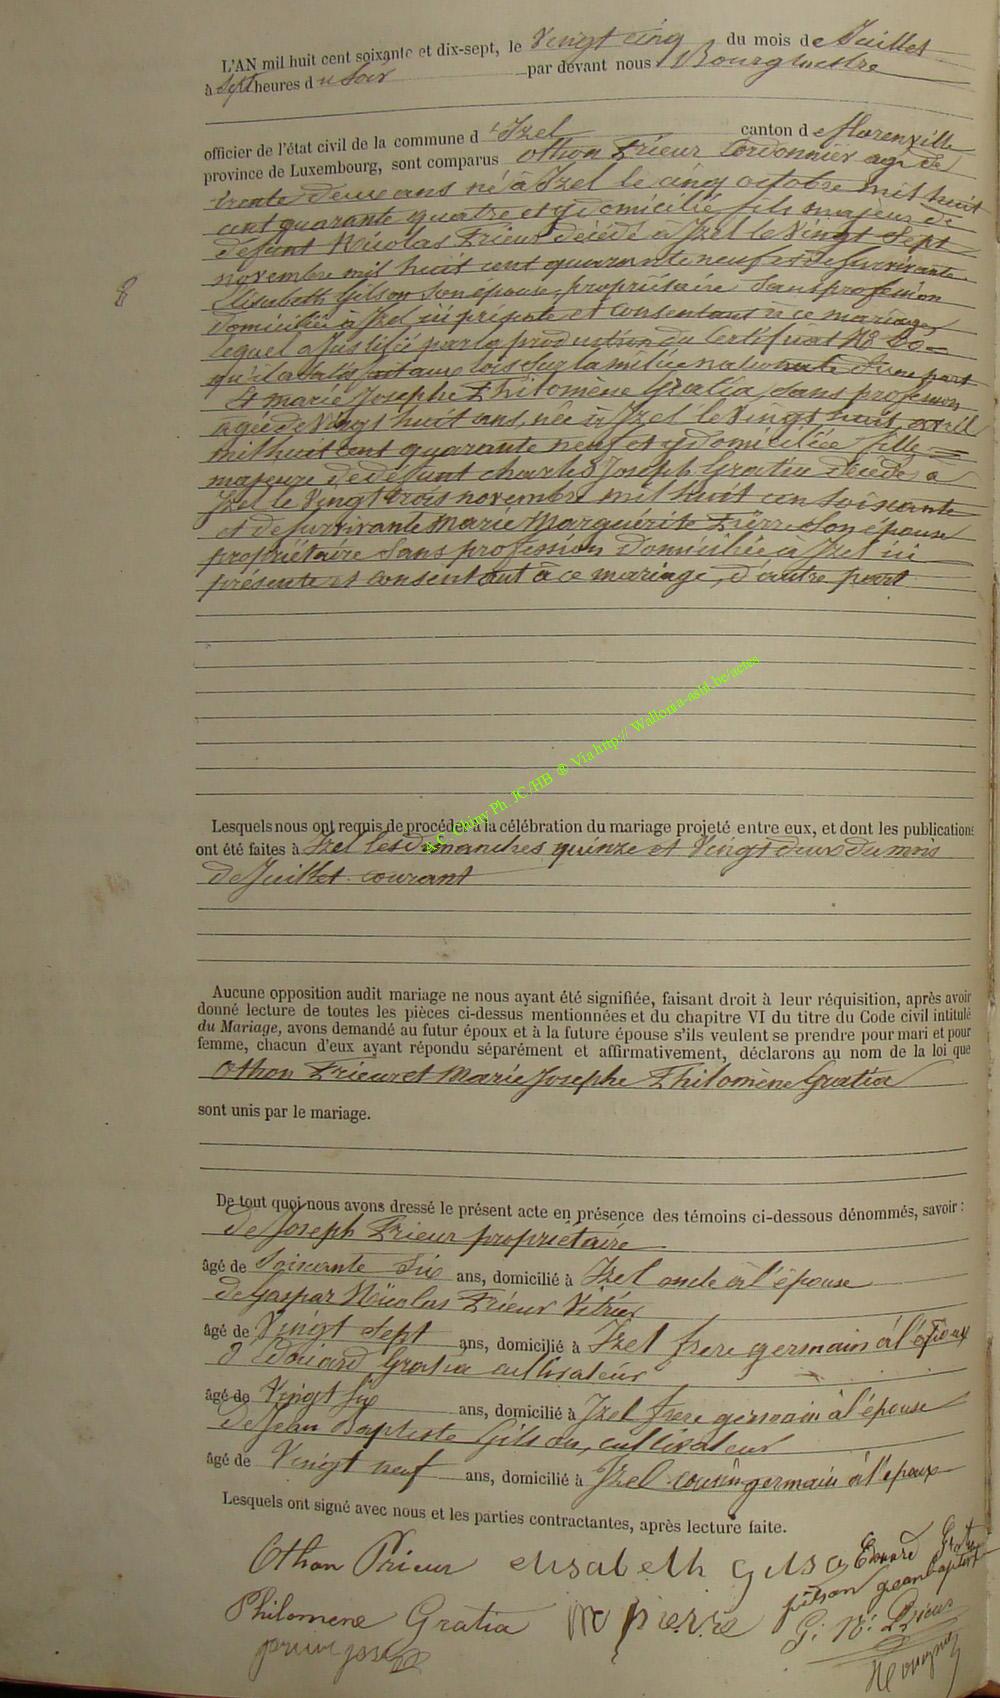 L'AN mil huit cent soixante et dix-sept, le Vingt cinq du mois de Juillet
à sept heures du Soir par devant nous Bourgmestre
officier de l'état civil de la commune d'Izel canton de florenville
province de Luxembourg, sont comparus Othon Prieur Cordonnier agé de
trente deux ans né à Izel le cinq octobre mil huit
cent quarante quatre et y domicilié fils majeur de
défunt Nicolas Prieur décédé à Izel le Vingt Sept
novembre mil huit cent quarante neuf et de survivante
Elisabeth Gilson Son epouse, propriétaire Sans profession
domiciliée à Izel ici présente et consentant à ce mariage,
lequel a justifié par la production du Certificat
qu'il a satisfait aux lois Sur la milice nationale d'une part
Et marie Josephe Philomène Gratia, sans profession
agée de Vingt huit ans, née à Izel le Vingt huit avril
mil huit cent quarante neuf et y domiciliée fille
majeure de défunt charles Joseph Gratia décédé à
Izel le Vingt trois novembre mil huit cen soixante
et de survivante Marie Marguérite Pierre Son épouse
propriétaire Sans profession domiciliée à Izel ici
présente et consentant à ce mariage, d'autre part
8
Lesquels nous ont requis de procéder à la célébration du mariage projeté entre eux, et dont les publications
ont été faites à Izel les dimanches quinze et Vingt deux du mois
de Juillet courant
A.C. Chiny Ph. JC/HB ® Via http:// Wallonia-asbl.be/actes
Aucune opposition audit mariage ne nous ayant été signifiée, faisant droit à leur réquisition, après avoir
donné lecture de toutes les pièces ci-dessus mentionnées et du chapitre VI du titre du Code civil intitulé
du Mariage, avons demandé au futur époux et à la future épouse s'ils veulent se prendre pour mari et pour
femme, chacun d'eux ayant répondu séparément et affirmativement, déclarons au nom de la loi que
Othon Prieur et Marie Josephe Philomène Gratia
sont unis par le mariage.
De tout quoi nous avons dressé le présent acte en présence des témoins ci-dessous dénommés, savoir :
de Joseph Prieur propriétaire
âgé de Soixante Six ans, domicilié à Izel oncle à l'épouse
de Gaspar Nicolas Prieur Vitrier
âgé de Vingt Sept ans, domicilié à Izel frere germain à l'époux
d'Edouard Gratia cultivateur
âgé de Vingt Six ans, domicilié à Izel frere germain à l'épouse
de Jean Baptiste Gilson, cultivateur
âgé de Vingt neuf ans, domicilié à Izel cousin germain à l'époux
Lesquels ont signé avec nous et les parties contractantes, après lecture faite.
Othon Prieur elisabeth gilson Edouard Gratia
gilson jeanbaptiste
Philomene Gratia pierre G. N. Prieur